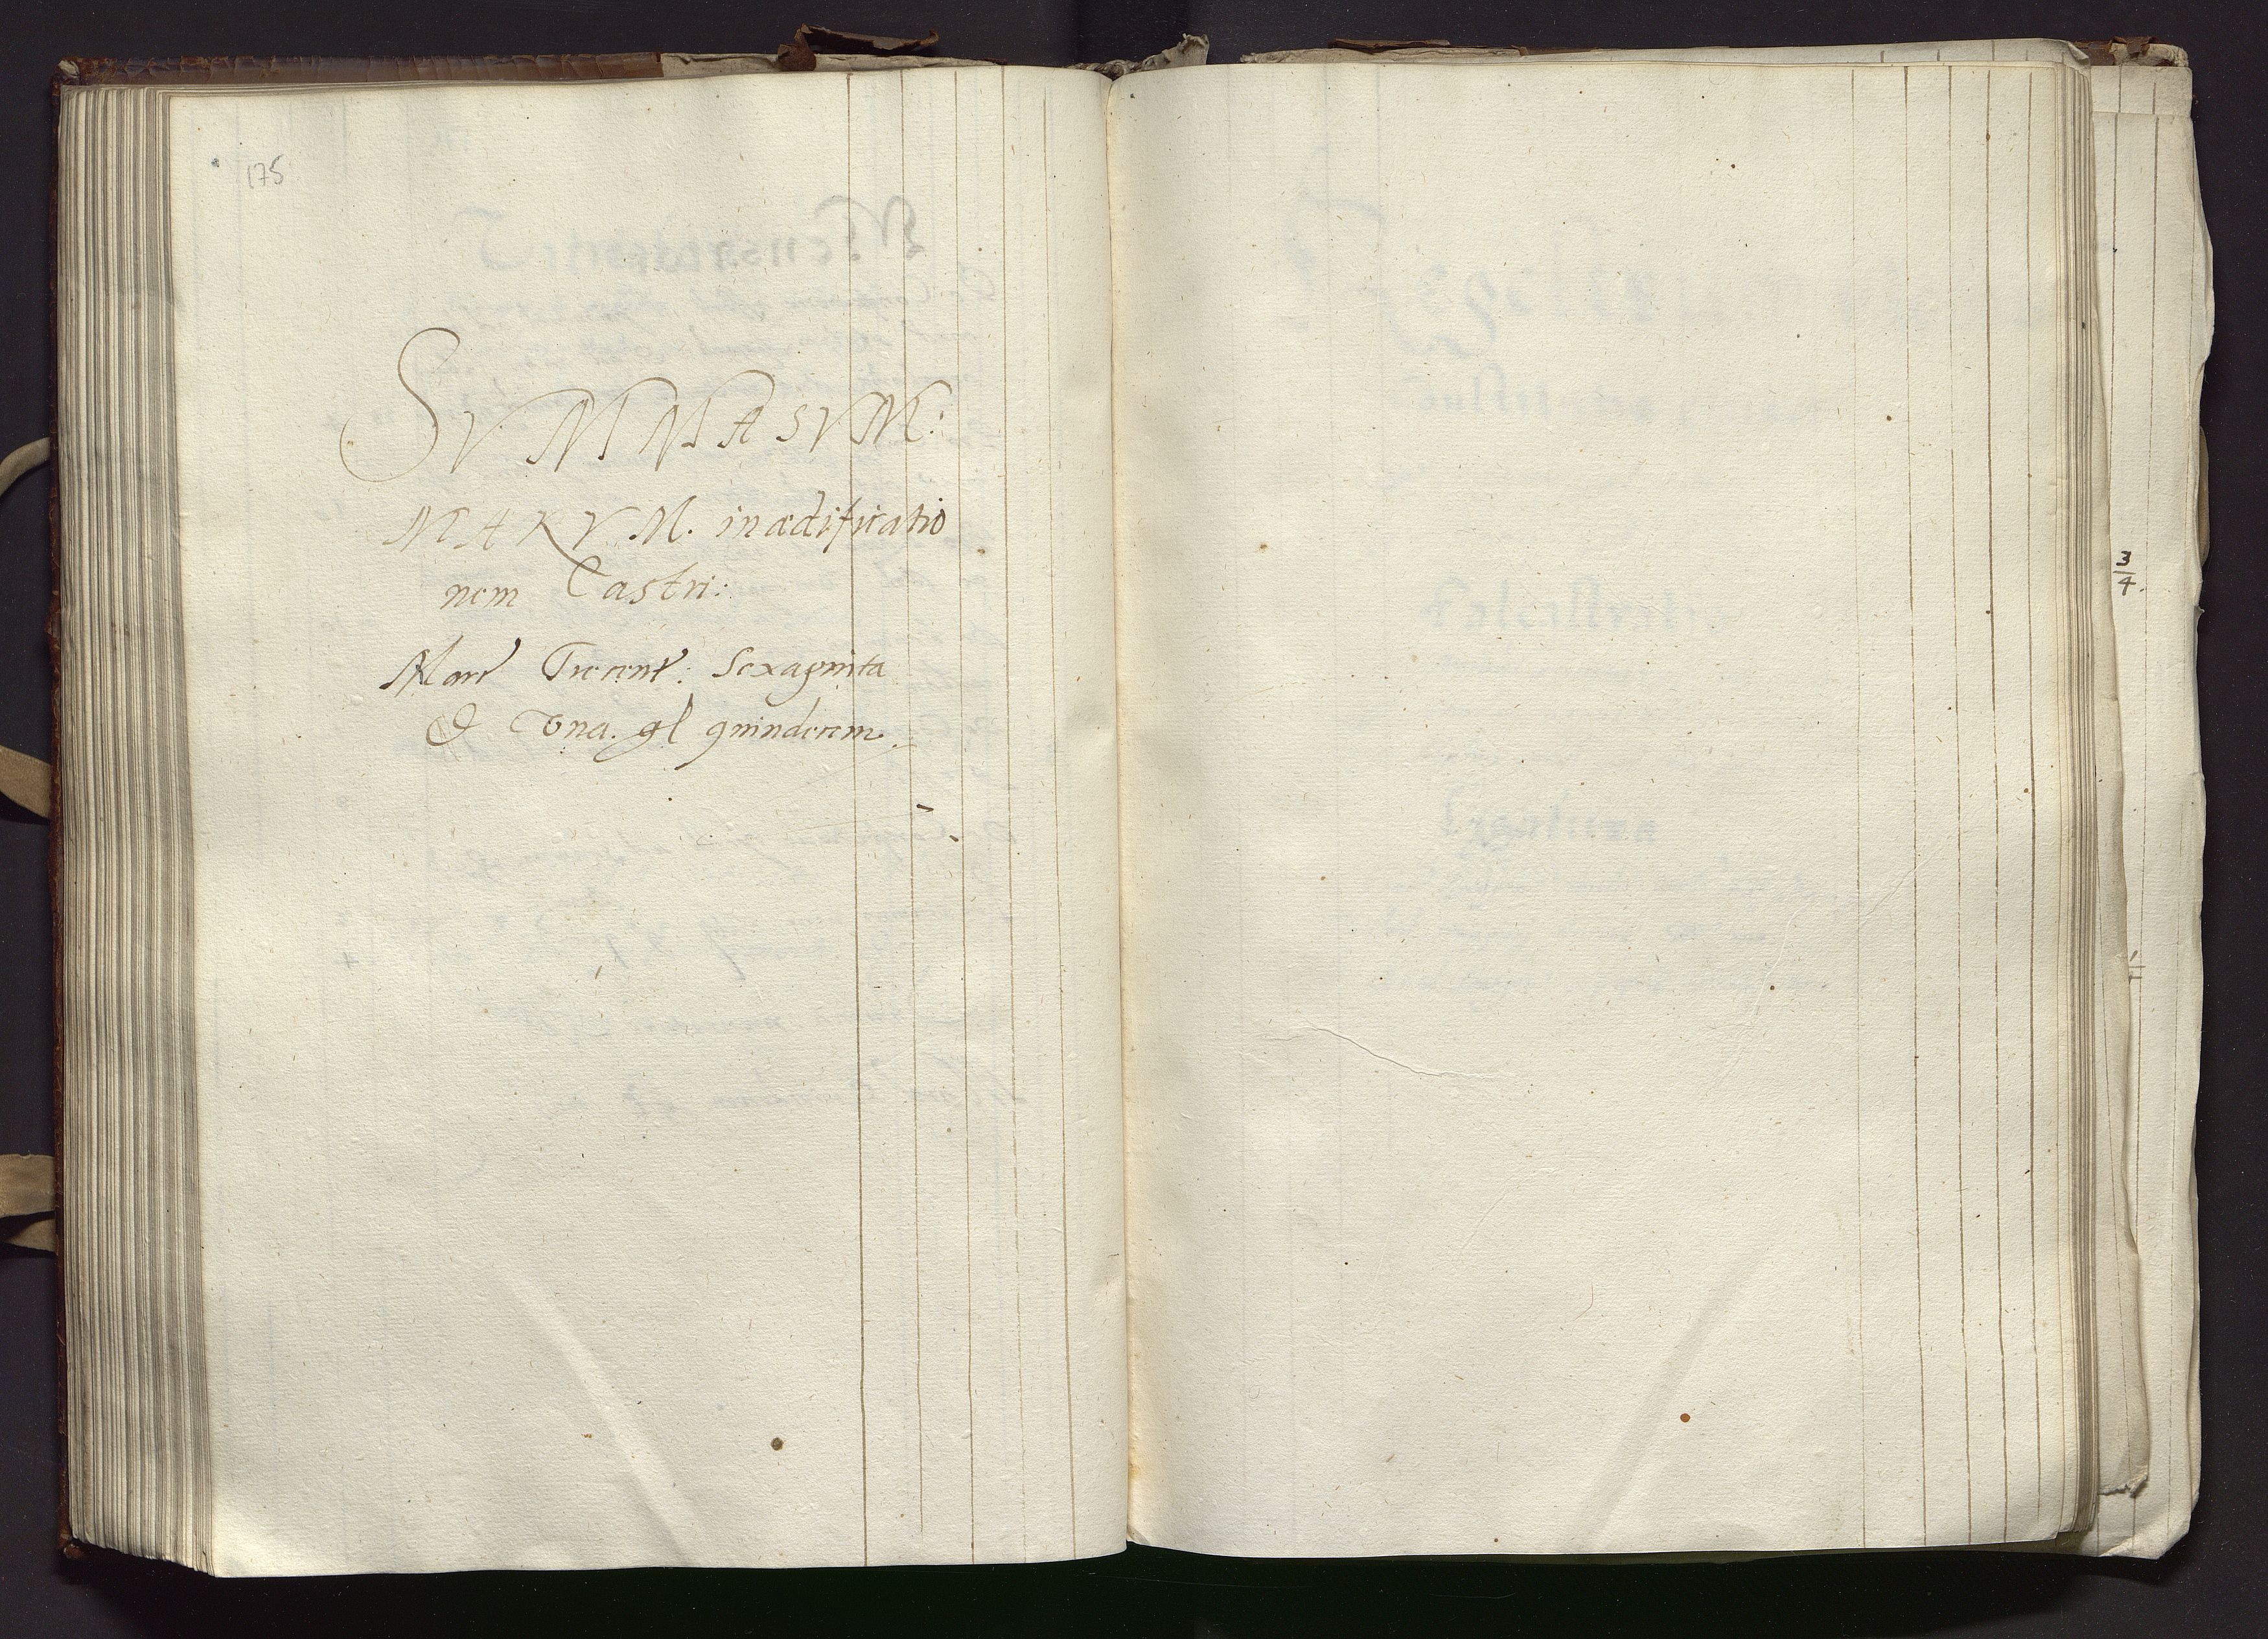 175
SVMMASVM:
MARVM. inædificatio
nem Castri:
Marc Trecent: Sexaginta
& Vna. gl quindecem.
3
4.